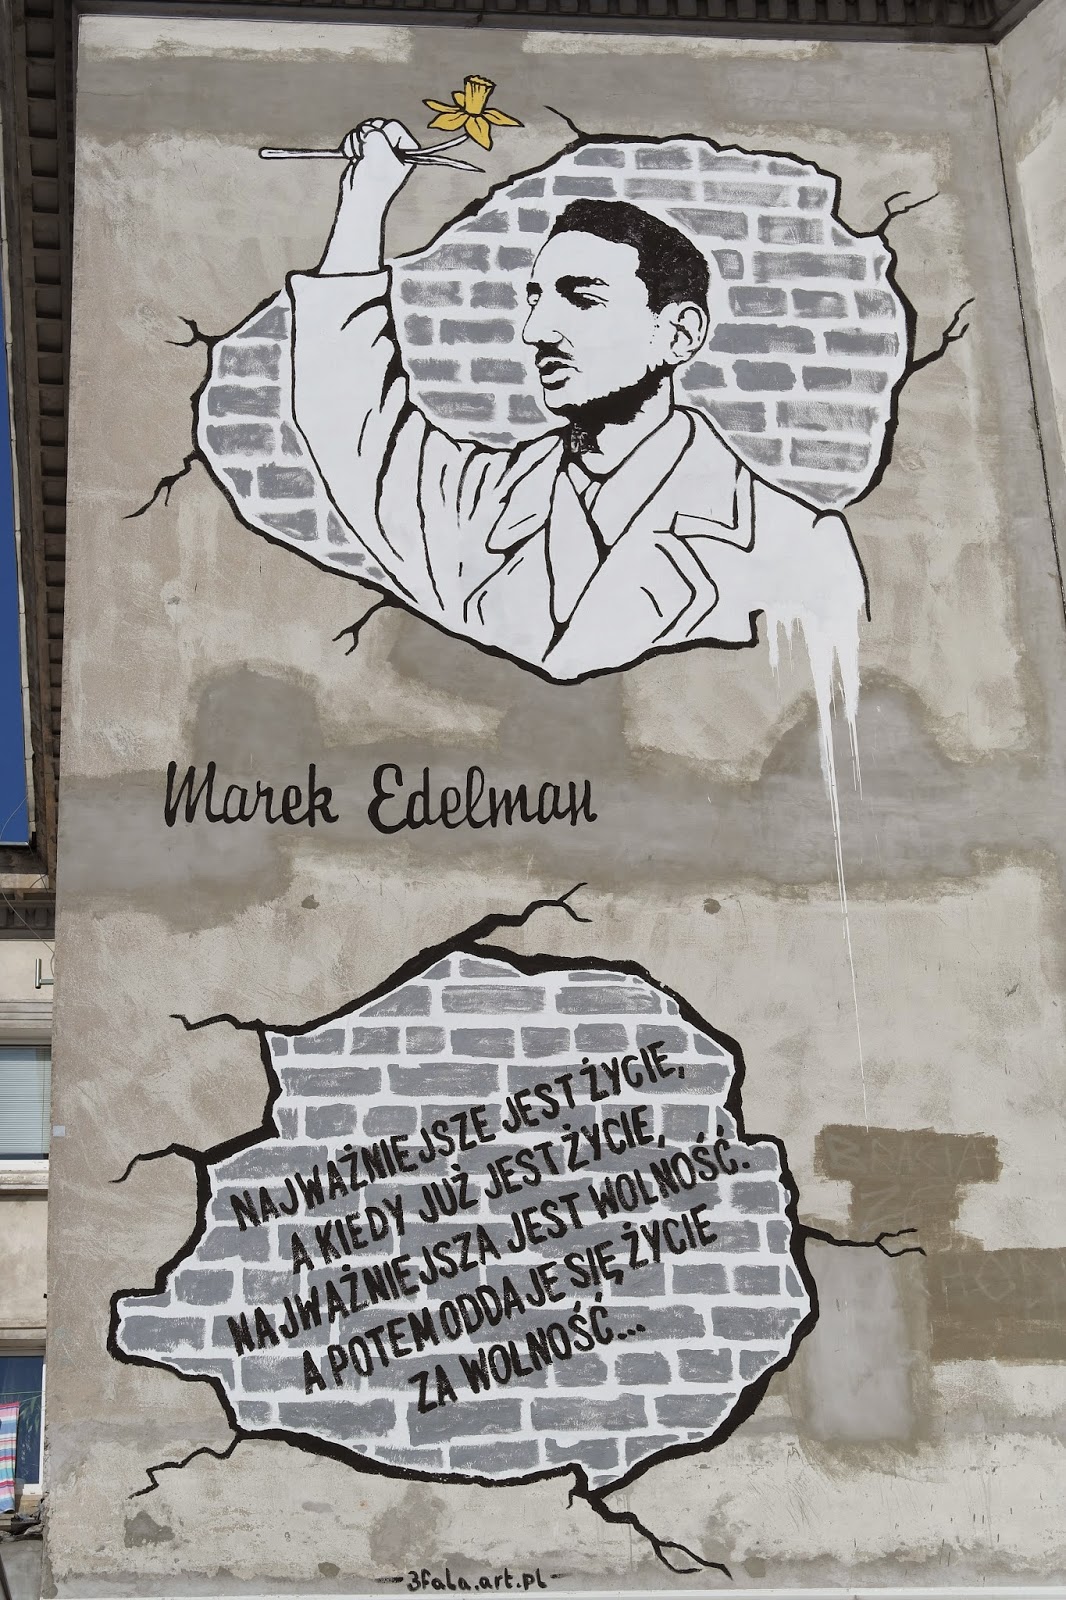 Marek Edelman
NAJWAŻNIEJSZE JEST ŻYCIE,
A KIEDY JUŻ JEST ŻYCIE,
NAJWAŻNIEJSZA JEST WOLNOŚĆ.
A POTEM ODDAJE SIĘ ŻYCIE
ZA WOLNOŚĆ...
-3fala.art.pl-